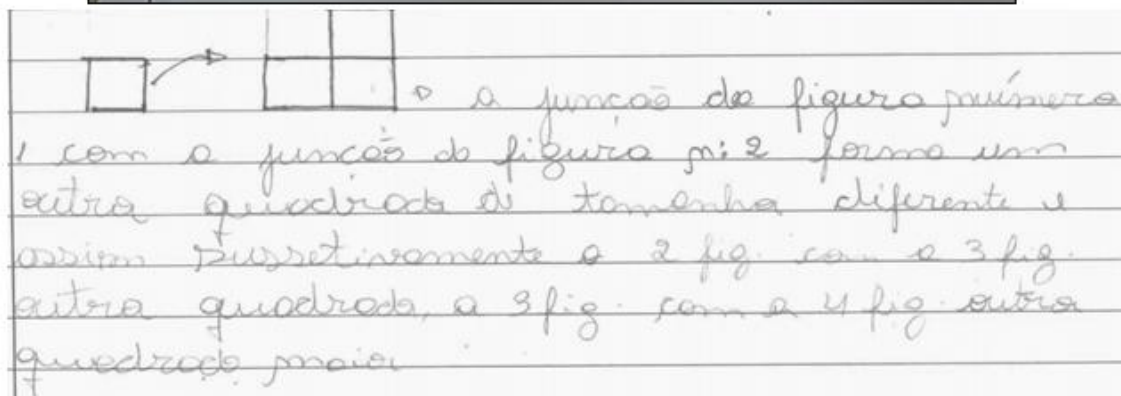 a junção da figura número
1 com a junção da figura n: 2 forma um
outro quadrado de tamanho diferente e
assim sussetivamente a 2 fig. com a 3 fig.
outro quadrado, a 3 fig. com a 4 fig. outro
quadrado maior